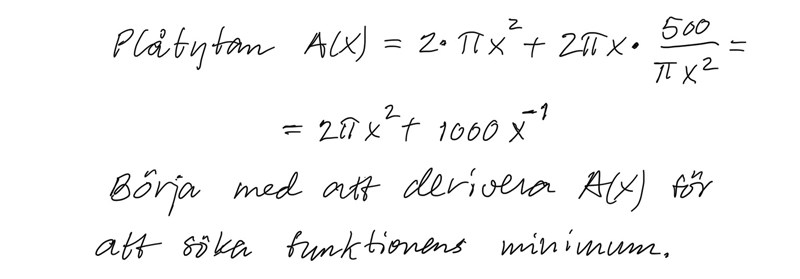 Plåtytan A(x) = 2·πx² + 2πx· 500/πx² =
= 2πx² + 1000 x⁻¹
Börja med att derivera A(x) för
att söka funktionens minimum.